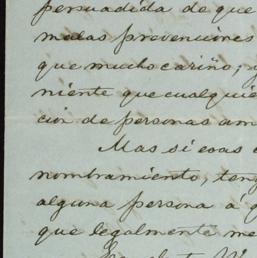 persuadida de que
malas prevenciones
que mucho cariño, y
niente que cualquie
cir de personas am
Mas si esas
nombramiento, ten
alguna persona a q
que legalmente me